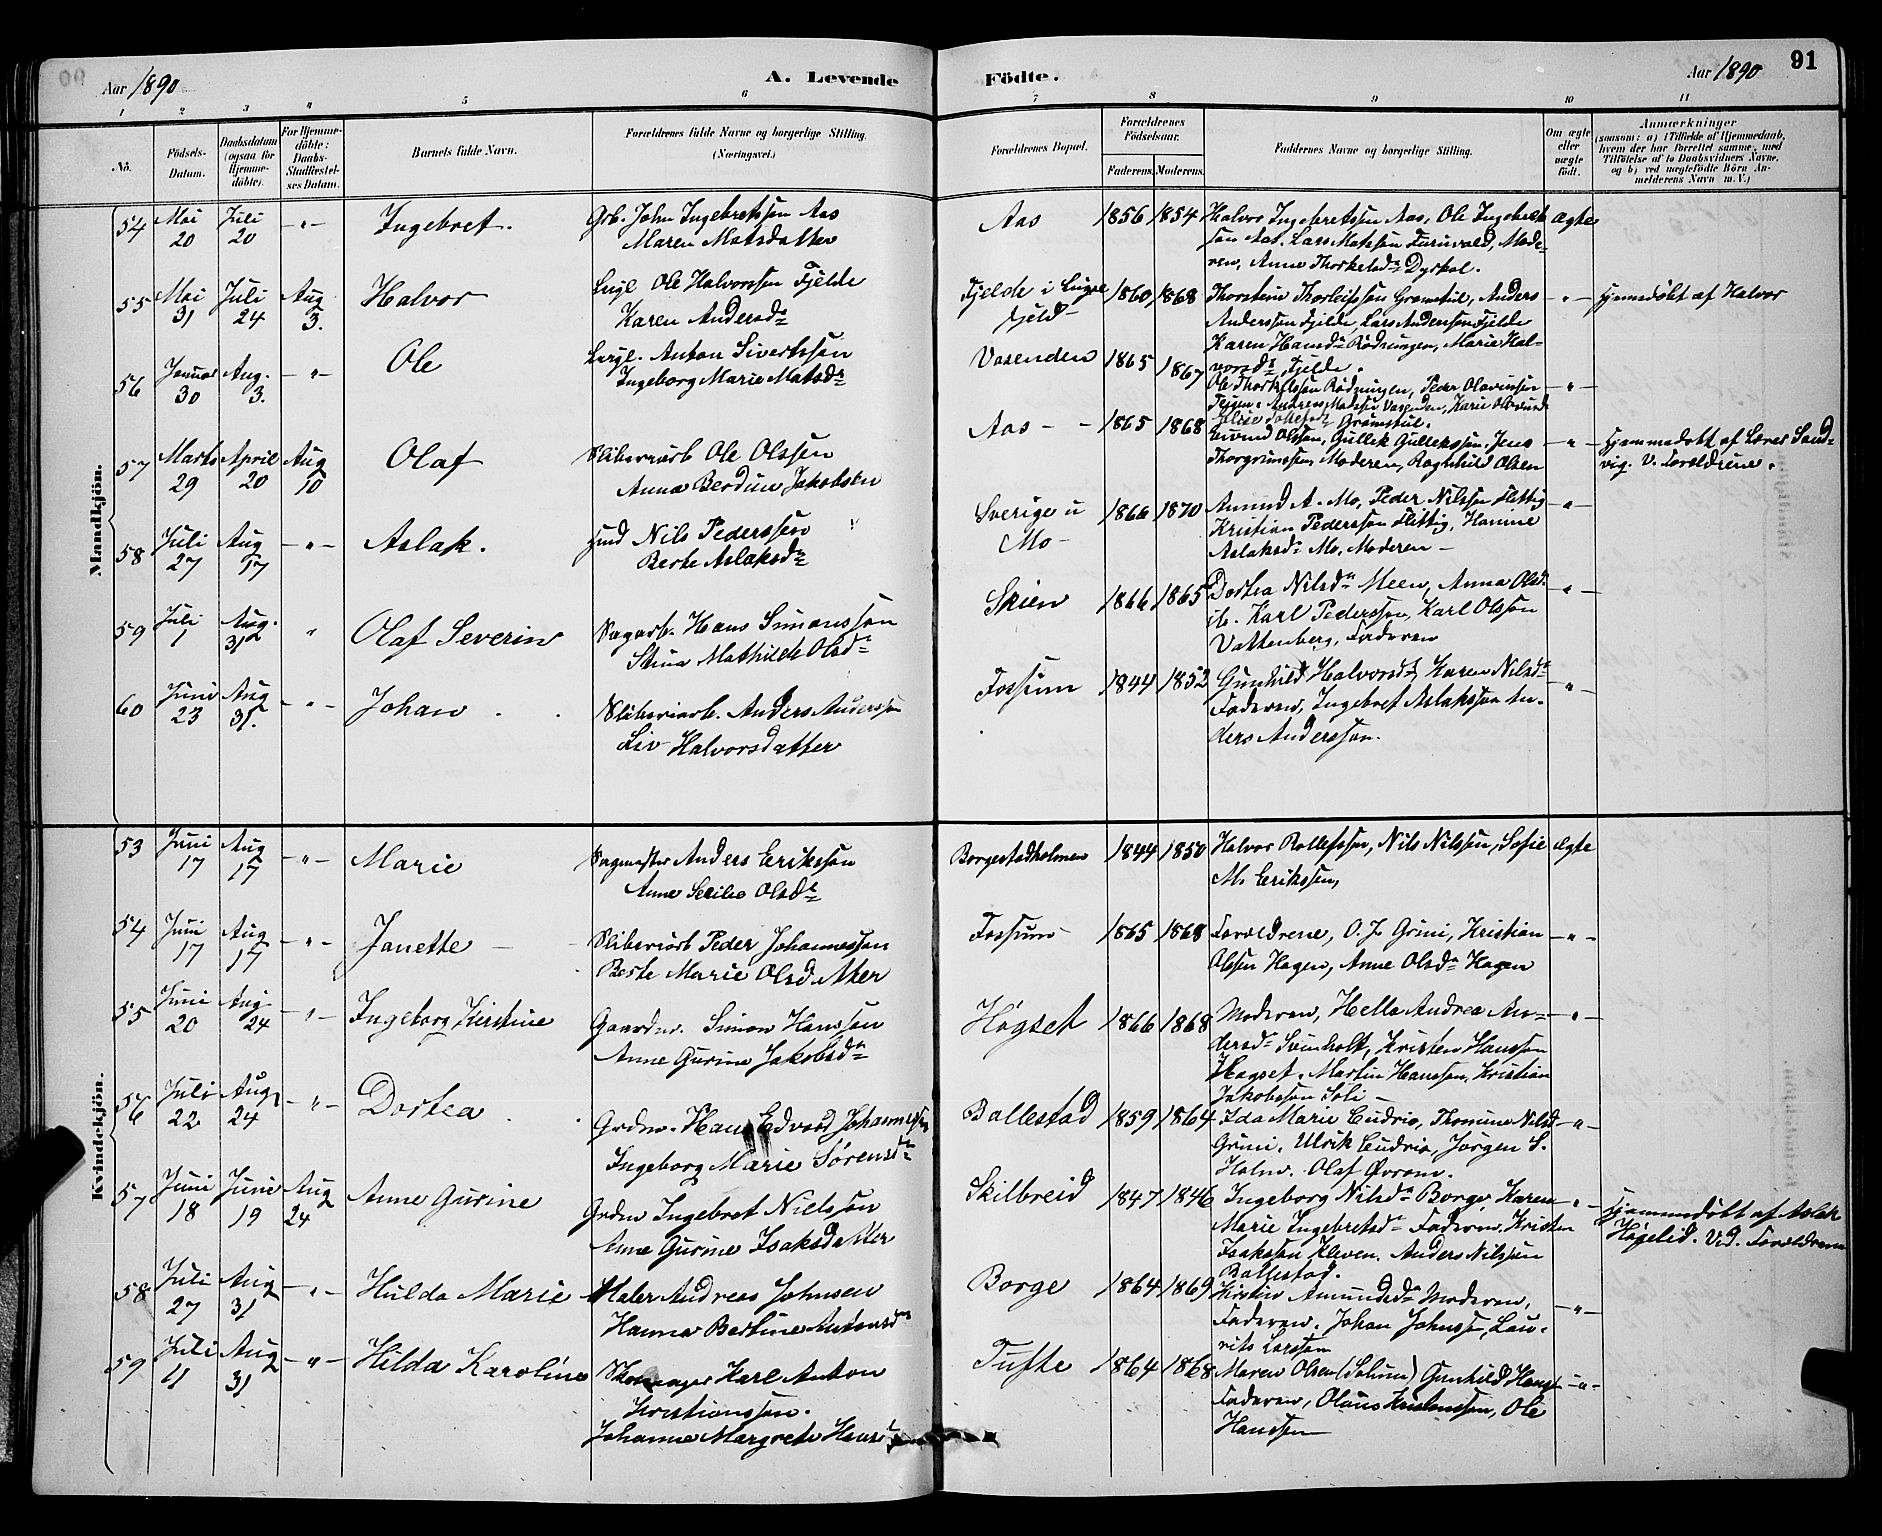 Aar 1890
A. Levende
Födte.
Aar 1890
91
1 2 3 4 5 6 7 8 9 10 11
No.
Födsels-
Datum.
Daabsdatum
(ogsaa for
Hjemme-
döbte).
For Hjemme-
döbte:
Daabs-
Stadfæstel-
ses Datum.
Barnets fulde Navn.
Forældrenes fulde Navne og borgerlige Stilling.
(Næringsvei.)
Forældrenes Bopæl.
Forældrenes
Födselsaar.
Faderens. Moderens.
Faddernes Navne og borgerlige Stilling.
Om ægte
eller
uægte
födt.
Anmærkninger
(saasom: a) i Tilfælde af Hjemmedaab,
hvem der har forrettet samme, med
Tilföielse af to Daabsvidners Navne,
og b) ved uægtefödte Börn An-
melderens Navn m. V.)
Mandkjön.
54 Mai 20 Juli 20 -"- Ingebret.
Grb. John Ingebretssøn Aas
Maren Matsdatter
Aas 1856 1854
Halvor Ingebretssøn Aas, Ole Ingebret-
søn Aas, Lars Matssøn Furuvald, Mode-
ren, Anne Thorkelsdr Dyrkol.
Ægte
55 Mai 31 Juli 24 Aug 3. Halvor
Ole Halvorssøn Fjelde
Karen Andersdr
Fjelde i Luxe
fjeld 1860 1868
Thorstein Thorleifssøn Gromstul, Anders
Anderssøn Fjelde, Lars Anderssøn Fjelde
Karen Hansdr Rødningen, Marie Hal-
vorsdr Fjelde.
-"- Hjemmedøbt af Halvor
56 Januar 30 Aug. 3. -"- Ole
Anton Sivertssøn
Ingeborg Marie Matsdr
Vasenden 1865 1867
Ole Thorkelssøn Rødningen, Peder Olavussøn
Gromstul.
-"-
57 Marts 29 April 20 Aug 10 Olaf
Sliberiarb Ole Olssøn
Anna Berdine Jakobsen
Aas - - 1865 1868
Eivind Olssøn, Gullek Gullekssøn, Jens
Thorgrimssøn, Moderen, Raghnhil Olsen
-"- Hjemmedøbt af Lærer Sand-
vig. V. Forældrene.
58 Juli 27 Aug 17 -"- Aslak.
Nils Pederssøn
Berte Aslaksdr
Sverige u
Mo - 1866 1870
Amund A. Mo, Peder Nilssøn Flittig
Kristian Pederssøn Flittig, Hanne
Aslaksdr Mo, Moderen -
-"-
59 Juli 1 Aug. 31 " Olaf Severin
Sagarb. Hans Simonssøn
Stina Mathilde Olsdr
Skien 1866 1865
Dortea Nilsdr Meen, Anna Olsdr
ib. Karl Pederssøn, Karl Olssøn
Vattenberg, Faderen
-"-
60 Juni 23 Aug 31. -"- Johan
Sliberiarb. Anders Anderssøn
Liv Halvorsdatter
Fossum 1844 1852
Gunhild Halvorsdr Karen Nilsdr
Faderen, Ingebret Aslakssøn An-
ders Anderssøn.
-"-
Kvindekjön.
53 Juni 17 Aug 17 -"- Marie
Sagmester Anders Erikssøn
Anne Olsdr
Borgestadholmen 1844 1850
Halvor Rollefssøn, Nils Nilssøn, Sofie
M. Erikssøn,
Ægte
54 Juni 17 Aug 17 -"- Janette -
Sliberiarb Peder Johannessøn
Berte Marie Olsdatter
Fossum - 1865 1868
Forældrene, O. J. Grini, Kristian
Olssøn Hagen, Anne Olsdr Hagen
-"-
55 Juni 20 Aug. 24 -"- Ingeborg Kirstine
Gaardm. Simon Hanssøn
Anne Gurine Jakobsdr
Høgset 1866 1868
Moderen, Hella Andrea An-
dersdr Svinholt, Kristen Hanssøn
Høgset, Martin Hanssøn, Kristian
Jakobssøn Soli -
-"-
56 Juli 22 Aug 24 -"- Dortea
Grdm. Hans Edvard Johannessøn
Ingeborg Marie Sørensdr
Ballestad 1859 1864
Ida Marie Cudrio, Thomine Nilsdr
Grini, Ulrik Cudrio, Jørgen S.
Holm, Olaf Øvrum.
-"-
57 Juni 18 Juni 19 Aug 24 Anne Gurine
Grdm Ingebret Nielssøn
Anne Gurine Isaksdatter
Skilbreid 1847 1846
Ingeborg Nilsdr Borge, Karen
Marie Ingebretsdr Faderen, Kristen
Isakssøn Kleven, Anders Nilssøn
Ballestad.
-"- Hjemmedøbt af Aslak
Høgelid. Vid. Forældrene
58 Juli 27 Aug 31 -"- Hulda Marie
Maler Andreas Johnsen
Hanna Bertine Antonsdr
Borge 1864 1869
Kirstin Amundsdr Moderen,
Faderen, Johan Johnsen, Lau-
rits Larssøn
-"-
59 Juli 11 Aug 31 -"- Hilda Karoline
Skomager Karl Anton
Kristianssøn.
Johanne Margrete Hansd
Tufte 1864 1868
Maren Olsen (Solum) Gunhild Hansdr
Faderen, Olaus Kristenssøn, Ole
Hanssøn
-"-